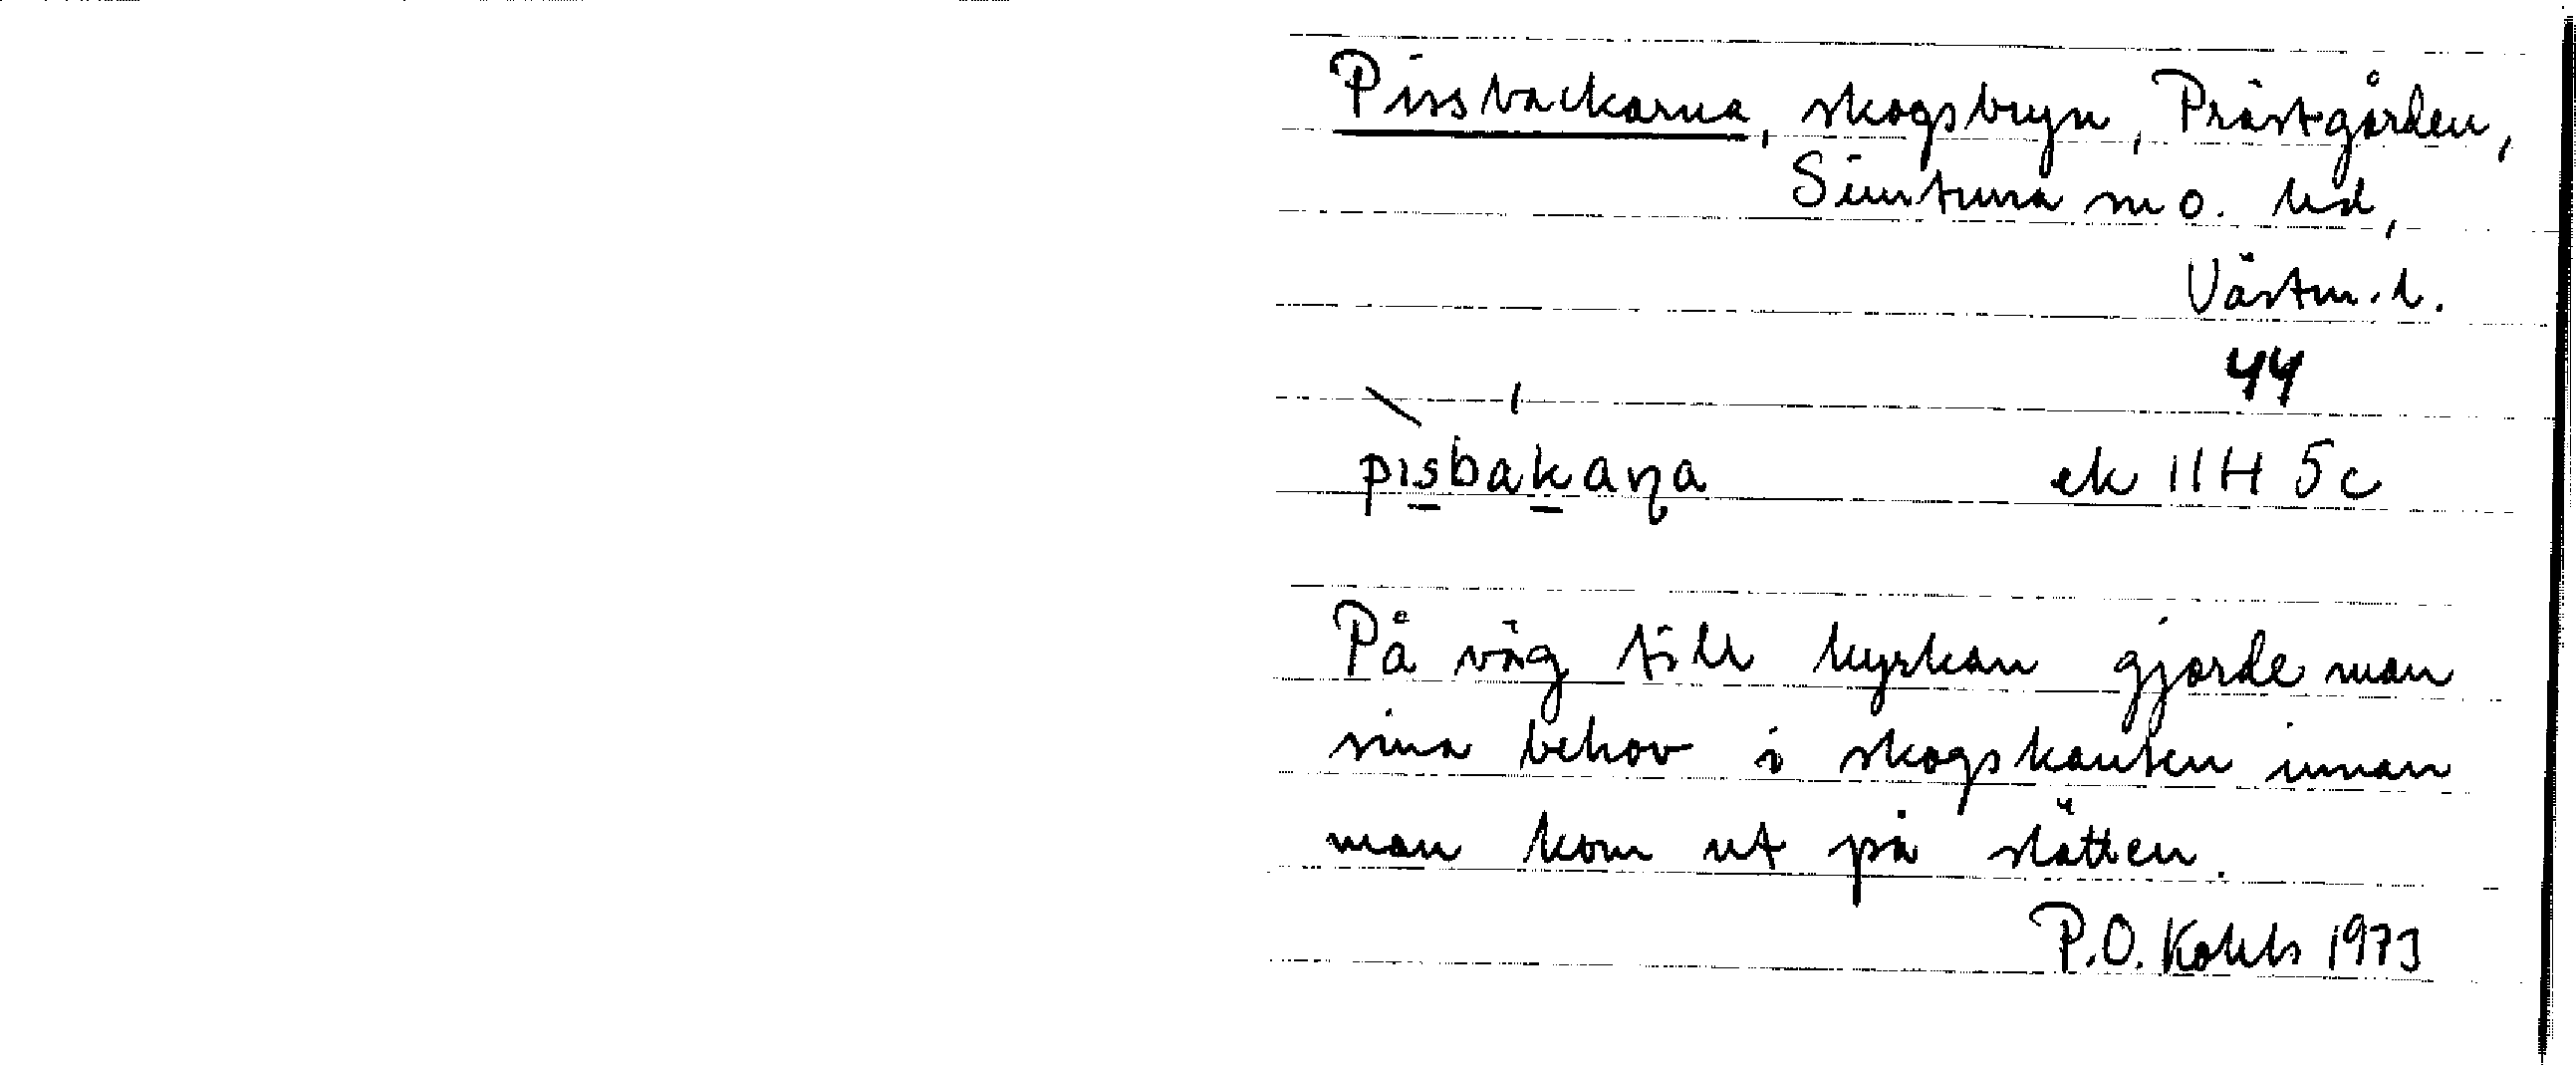 Pissbackarna, skogsbryn, Prästgården,
Simtuna sn o. hd,
Västm. l.
44
pisbakaɳa ek 11H 5c
På väg till kyrkan gjorde man
sina behov i skogskanten innan
man kom ut på slätten.
P.O. Kohls 1973